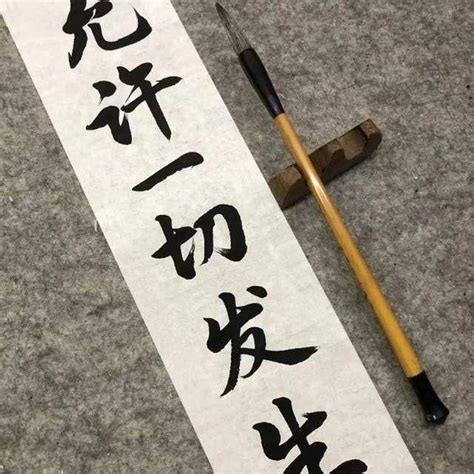 允许一切发生